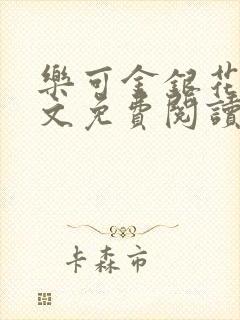 樂可金銀花
文免費閱讀
卡森市